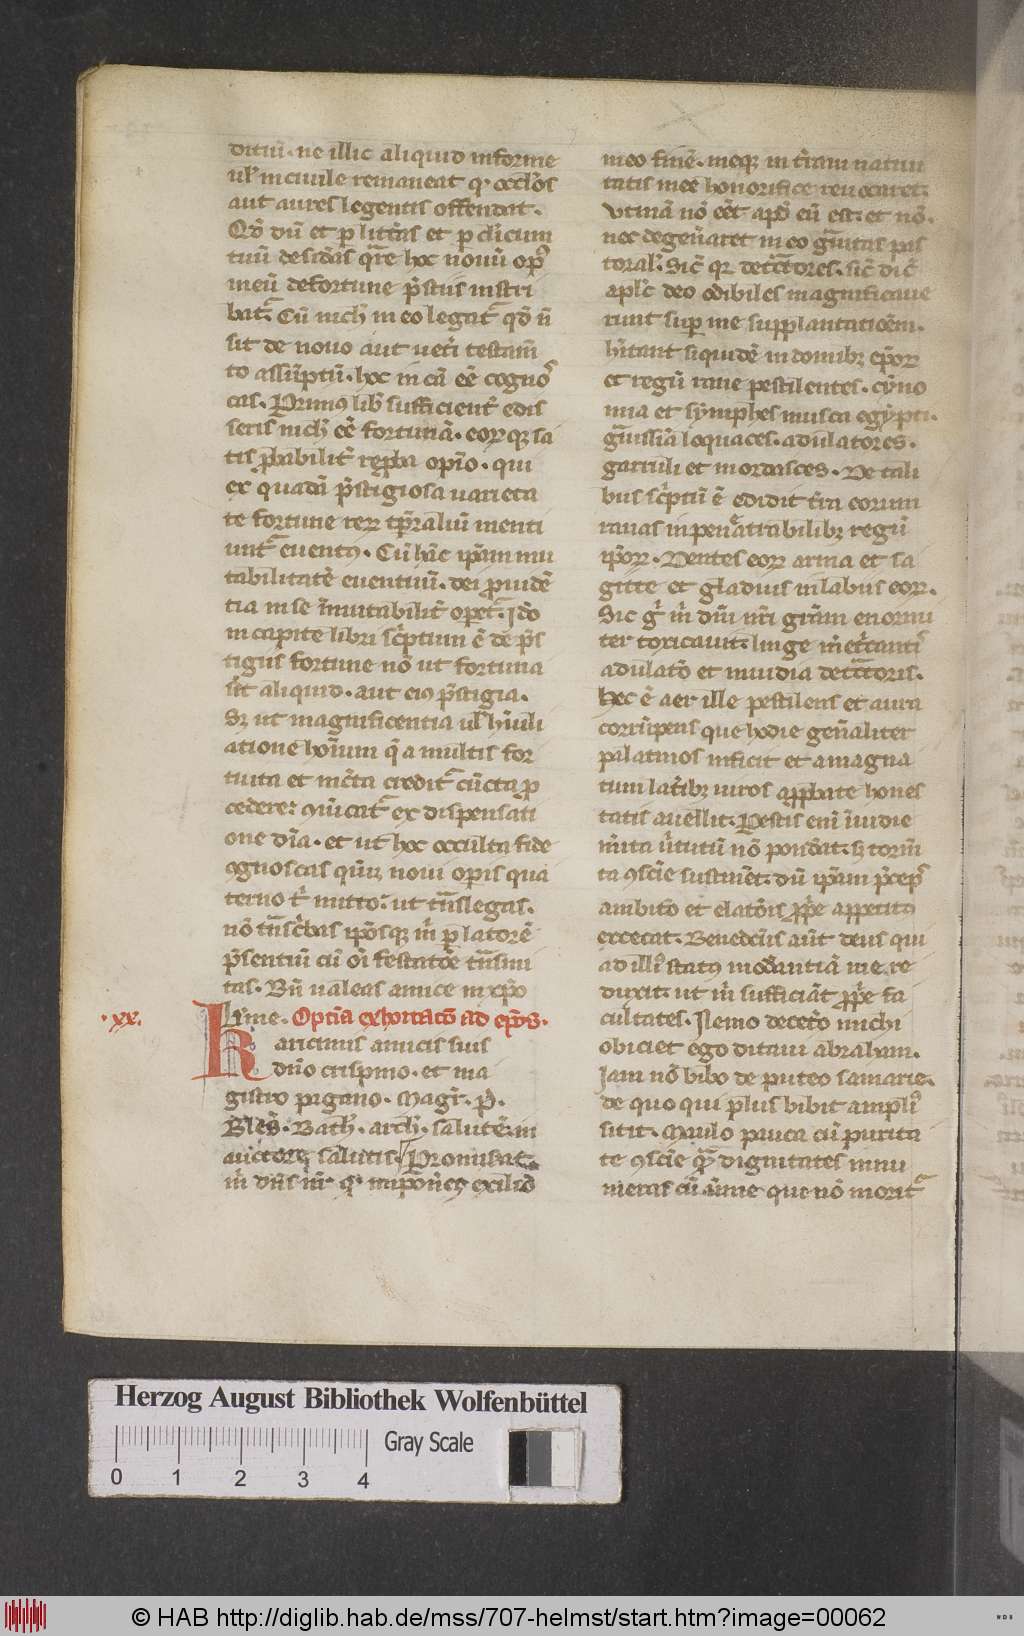 ditiuu. ne illic aliquid informe
ul' inciuile remaneat qd' occl'os
aut aures legentis offendat.
Qd' dū et p litt'as et p cl'icum
tuū desid'as q're hoc nouū op'
meū de fortune p'stiis inst'i
bat'. Cū nich' in eo legat' qd' n̄
sit de nouo aut uet'i testam̄
to assūptū. hoc in cā eē cogno'
cas. Primus lib' sufficient' edis
seris nich' eē fortunā. eorq; sa
tis p'babilit' rep'ba opio. qui
ex quadā p'stigiosa uarieta
te fortune rer' tp'raliū menti
unt' euentus. Cū hāc ip'am mu
tabilitatē euentuū. dei p'uidē
tia in se i'mutabilit' opet'. Ido
in capite libri sc'ptum ē de p's
tigiis fortune nō ut fortuna
sit aliquid. aut eius p'stigia.
S; ut magnificentia ul' h'uili
atione hoīum q' a multis for
tuita et inc'ta credit' cūcta p
cedere: ex dispensati
one dīa. et ut hoc occulta fide
9gnoscas qūiz noui op'is qua
terno t' mitto: ut t'nslegas.
nō t'nsc'bas ip'osq; m' p latorē
p'sentiū cū oī festatōe t'nsmi
tas. Bn̄ ualeas amice in xp'o
k'rime. Optīa exhortatō ad ep'os.
.xx.
Karicimis amicis suis
dn̄o crispino. et ma
gistro pigano. Magr̄. P.
Bles̄. Bath'. arch'. salutē in
auctore salutis. Promisat
m' dn̄s nr̄ qd' exilio
meo finē. meq; in t'ram natiui
tatis meē honorifice reuocaret.
Vtinā nō eēt apd' eū est: et nō.
nec degen'aret in eo g'uitas pas
toral'. Sic' q; det'ctores. sic' dic'
apl'c deo odibiles magnificaue
runt sup me supplantatioēm.
h'itant siquidē in domib; ep'or
et regū rane pestilentes. cyno
mia et symphes musca egypti.
g'uissia loquaces. adulatores.
garruli et mordasces. De tali
bus sc'ptū ē edidit t'ra eorum
ranas in penet'abilib; regū
ip'or. Dentes eor' arma et sa
gitte et gladius in labiis eor'.
Sic g' m' dn̄i n'ri gr̄am enormi
ter toxicauit. linge m'et'canti'
adulato et inuidia det'ctoris.
hec ē aer ille pestilens et aura
corrūpens que hodie gen'aliter
palatinos inficit et a magna
tum lat'ib; uiros app'bate hones
tatis auellit. Pestis eni' i'uidie
m'ita u'tutū nō pond'at. s; torm̄
ta 9sciē sustinēt. dū ip'am p'cep'
ambito et elatōis pp'e appetito
excecat. Benedc̄us aūt deus qui
ad illi' status mod'antiā me re
duxit. ut m' sufficiāt pp'e fa
cultates. Nemo decet'o michi
obiciet ego ditaui abraham.
Iam nō bibo de puteo samarie.
de quo qui plus bibit ampli'
sitit. Maulo pauca cū purita
te 9sciē q'm dignitates innu
meras cū ūme que nō morit'
Herzog August Bibliothek Wolfenbüttel
Gray Scale
0 1 2 3 4
© HAB http://diglib.hab.de/mss/707-helmst/start.htm?image=00062